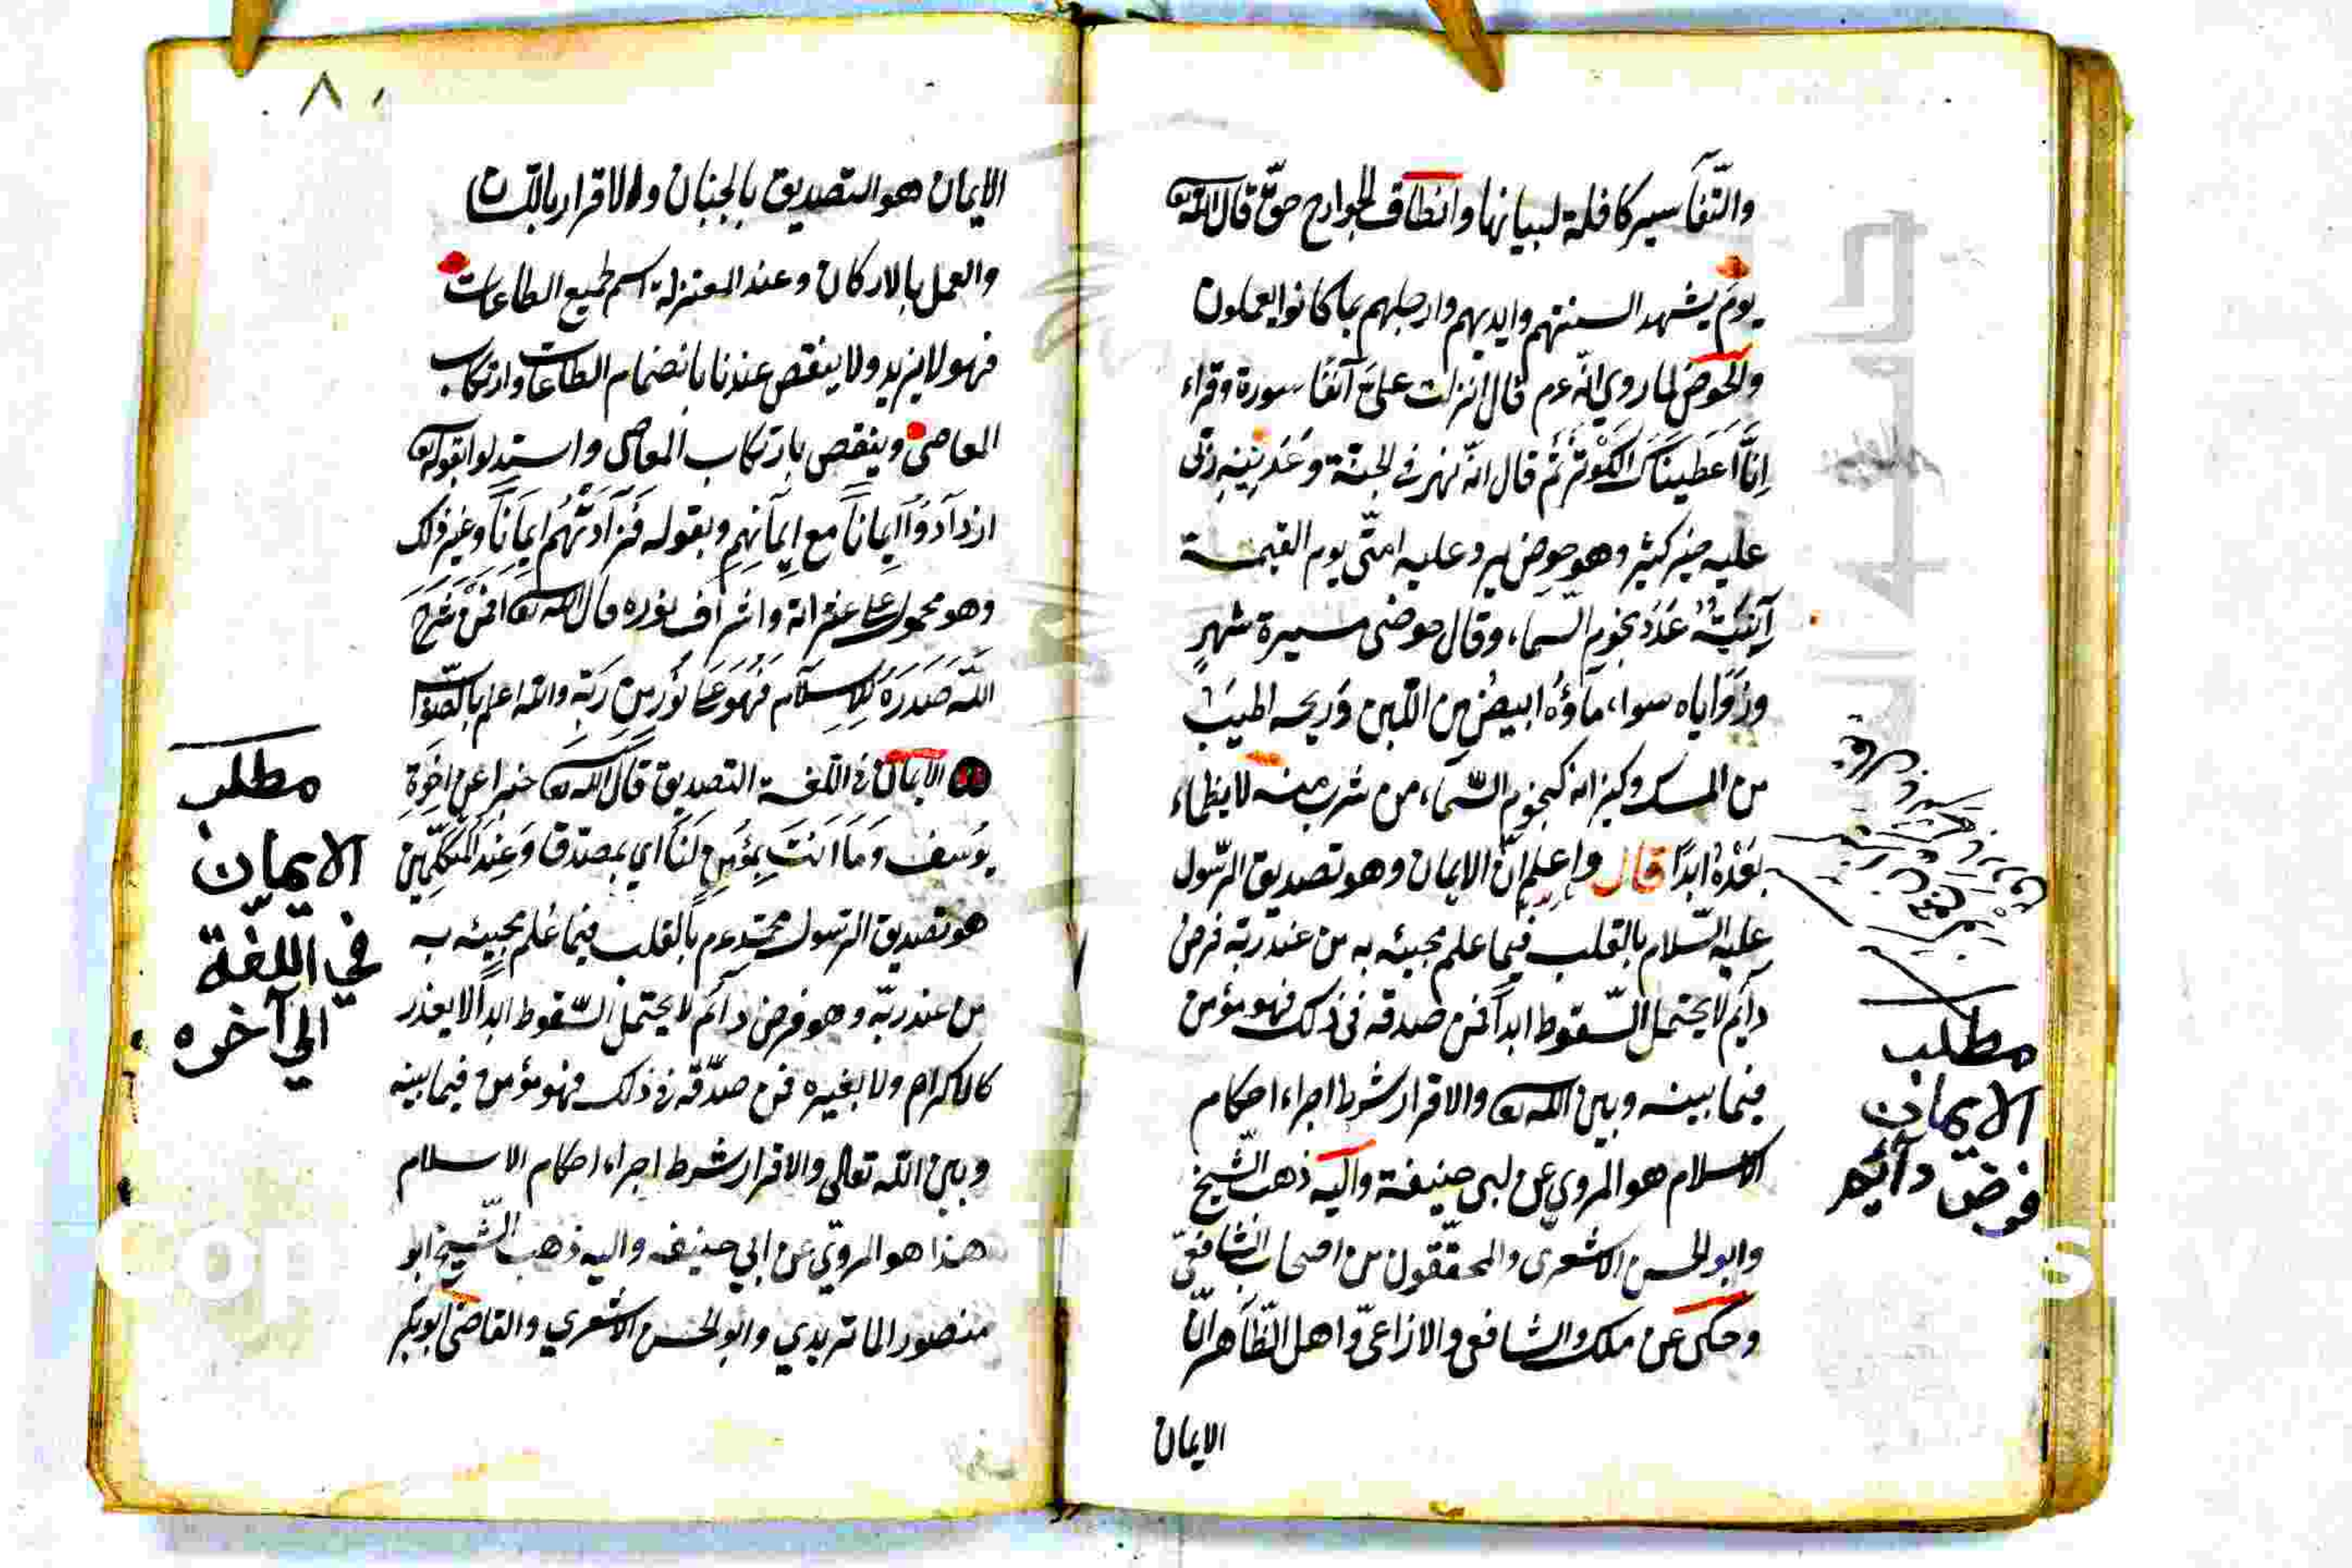 والتّفاسير كافلة لبيانها وانطاق الجوارح حقّ قال الله تع
يوم يشهد السنتهم وايديهم وارجلهم بما كانوا يعملون
والحوض لما روي انّه عم قال انزلت علىّ آنفًا سورة وقراء
اِنَّا اَعطيناكَ الكَوْثَرَ ثم قال انّه نهر في الجنّة وعدنيه ربّى
عليه خير كثير وهو حوض يرد عليه امتى يوم القيمة
آنيتُه عَدَدَ نجوم السماء وقال حوضى مسيرة شهرٍ
وزَوَاياه سواء ماؤُهُ ابيضُ من اللّبن وَريحه اطيبُ
من المسك وكيزانه كنجوم السّماء من شرب منه لا يظماء
بَعْدَهُ ابدًا قال واعلم انّ الايمان وهو تصديق الرّسول
عليه السّلام بالقلب فيما علم مجيئه به من عند ربّه فرضٌ
دآئم لا يحتمل السّقوط ابداً فمن صدقه فى ذلك فهو مؤمن
فيما بينه وبين الله تع والاقرار شرط اجراء احكام
الاسلام هو المروي عن ابى حنيفة واليه ذهب الشّيخ
وابو الحسن الاشعرى والمحقّقون من اصحاب الشّافعىّ
وحكى عن ملك والشافعى والازاعىّ واهل الظّاهر انّ
الايمان
مطلب
الايمان
فرض دآئم
٨
الايمان هو التصديق بالجنان والاقرار باللّسان
والعمل بالاركان وعند المعتزلة اسم لجميع الطاعات
فهو لا يزيد ولا ينقص عندنا بانضمام الطاعات وارتكاب
المعاصى وينقص بارتكاب المعاصى واستدلوا بقوله تع
ازدآدوُا اِيماناً مع اِيمانِهِم وبقوله فَزَادَتْهُم اِيمَاناً وغير ذلك
وهو محمول على ثمراته واشراف نوره قال الله تع افمَنْ شَرَحَ
اللّهُ صَدرَهُ لِلاِسلَام فَهُوَ عَلى نُورٍ مِن رَبِّهِ والله اعلم بالصّواب
الايمان في اللّغة التصديق قال الله تع خبرا عن اِخوَةِ
يوُسُف وَمَا اَنتَ بِمُؤمِنٍ لَنَا اي بمصدّق وَعِندَ المُتَكلِّمِين
هو تصديق الرسول محمّد عم بالقلب فيما عُلم مجيئه به
من عند ربّه وهو فرض دآئم لا يحتمل السّقوط ابداً لا بعذر
كالاكرام ولا بغيره فمن صدّقه في ذلك فهو مؤمن فيما بينه
وبين اللّه تعالى والاقرار شرط اجراء احكام الاسلام
هذا هو المرويّ عن ابي حنيفه واليه ذهب الشّيخ ابو
منصور الماتريدي وابو الحسن الاشعري والقاضى ابو بكر
مطلب
الايمان
في اللّغة
الي آخره